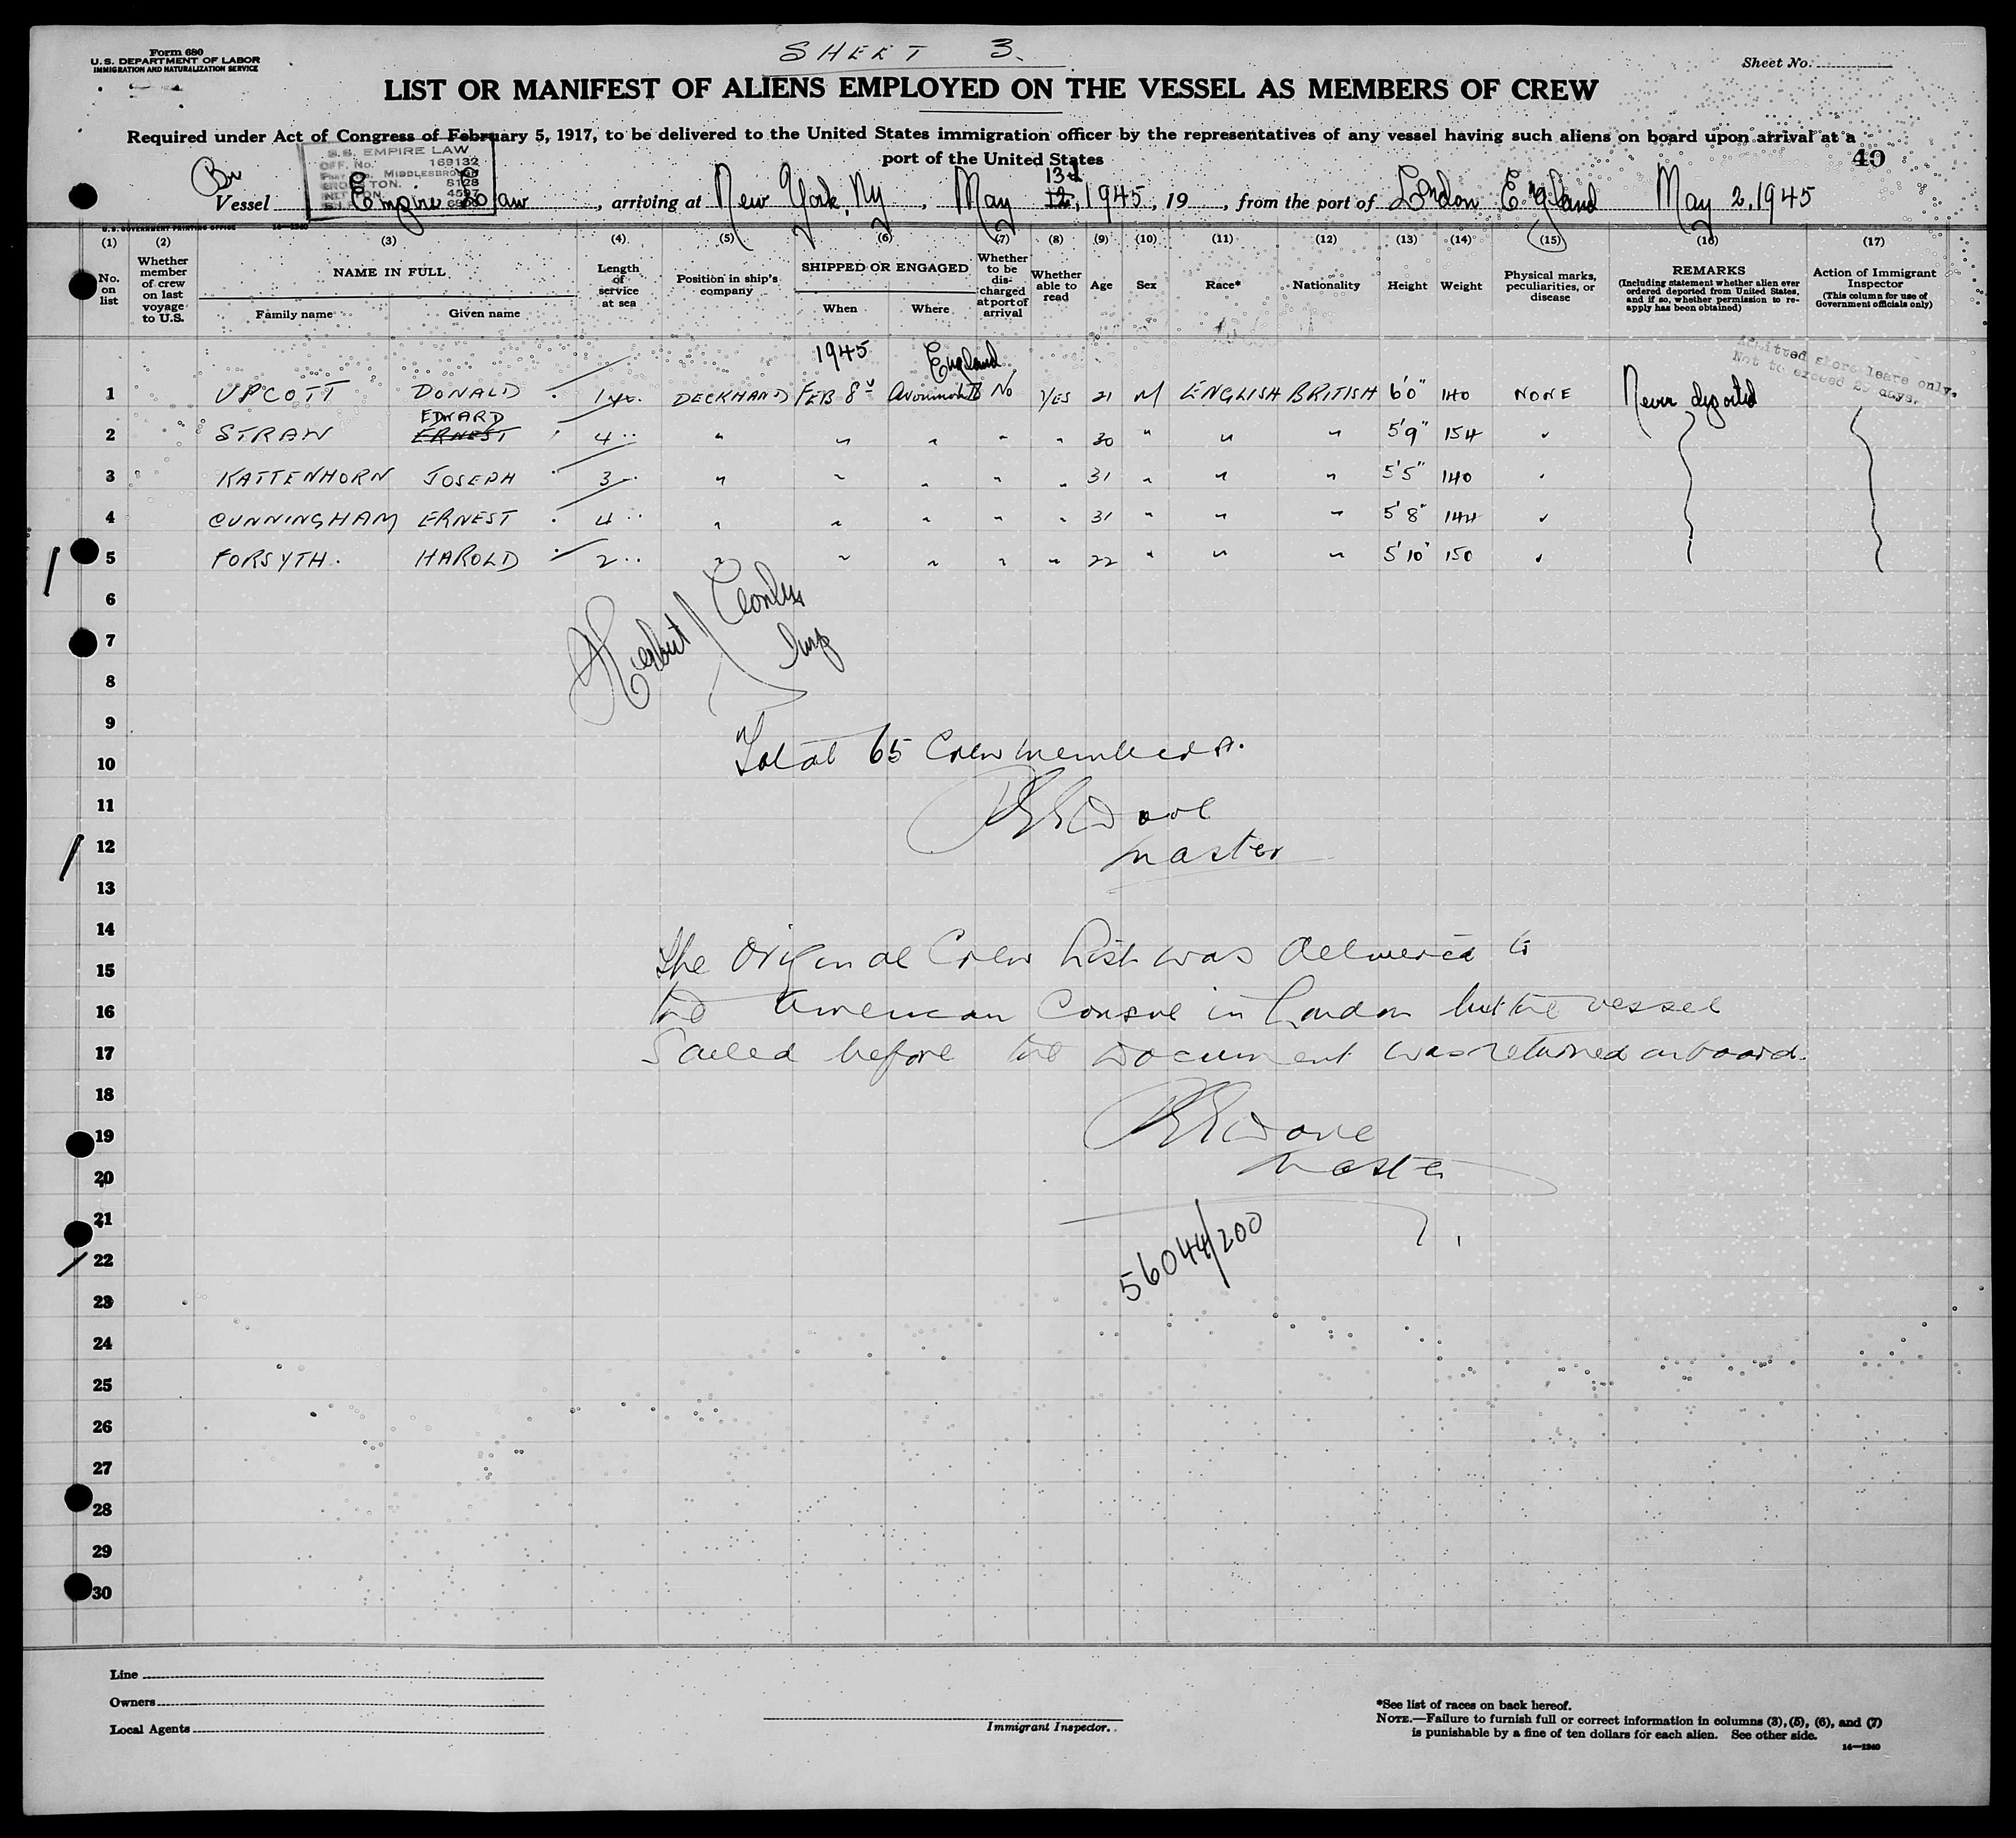 SHEET 3.
Form 680
U.S. DEPARTMENT OF LABOR
IMMIGRATION AND NATURALIZATION SERVICE
Sheet No.
LIST OR MANIFEST OF ALIENS EMPLOYED ON THE VESSEL AS MEMBERS OF CREW
Required under Act of Congress of February 5, 1917, to be delivered to the United States immigration officer by the representatives of any vessel having such aliens on board upon arrival at a
port of the United States
40
S.S. EMPIRE LAW
OFF. No. 169132
MIDDLESBROUGH
TON. 8128
4597
Br
Vessel Empire Law, arriving at New York, Ny, May 12, 13th 1945, 19, from the port of London England May 2, 1945
U.S. GOVERNMENT PRINTING OFFICE 16—1240
(1) (2) (3) (4) (5) (6) (7) (8) (9) (10) (11) (12) (13) (14) (15) (16) (17)
No. on list
Whether member of crew on last voyage to U.S.
NAME IN FULL
Family name Given name
Length of service at sea
Position in ship's company
SHIPPED OR ENGAGED
When Where
Whether to be discharged at port of arrival
Whether able to read
Age
Sex
Race*
Nationality
Height
Weight
Physical marks, peculiarities, or disease
REMARKS
(Including statement whether alien ever ordered deported from United States, and if so, whether permission to reapply has been obtained)
Action of Immigrant Inspector
(This column for use of Government officials only)
Admitted shore leave only.
Not to exceed 29 days.
1945 England
1 UPCOTT DONALD 1 yr. DECKHAND FEB 8 Avonmouth No YES 21 M ENGLISH BRITISH 6'0" 140 NONE Never deported
EDWARD
2 STRAW ERNEST 4 " " " " " " 30 " " " 5'9" 154 "
3 KATTENHORN JOSEPH 3 " " " " " " 31 " " " 5'5" 140 "
4 CUNNINGHAM ERNEST 4 " " " " " " 31 " " " 5'8" 144 "
5 FORSYTH. HAROLD 2 " " " " " " 22 " " " 5'10" 150 "
6
7
8
9
Total 65 Crew members.
10
11
12
master
13
14
The original Crew List was delivered to
15
the American Consul in London but the vessel
16
Sailed before the document was returned onboard.
17
18
19
Master
20
21
56044/200
22
23
24
25
26
27
28
29
30
Line
Owners
Local Agents
Immigrant Inspector.
*See list of races on back hereof.
NOTE.—Failure to furnish full or correct information in columns (3), (5), (6), and (7)
is punishable by a fine of ten dollars for each alien. See other side.
14—1240